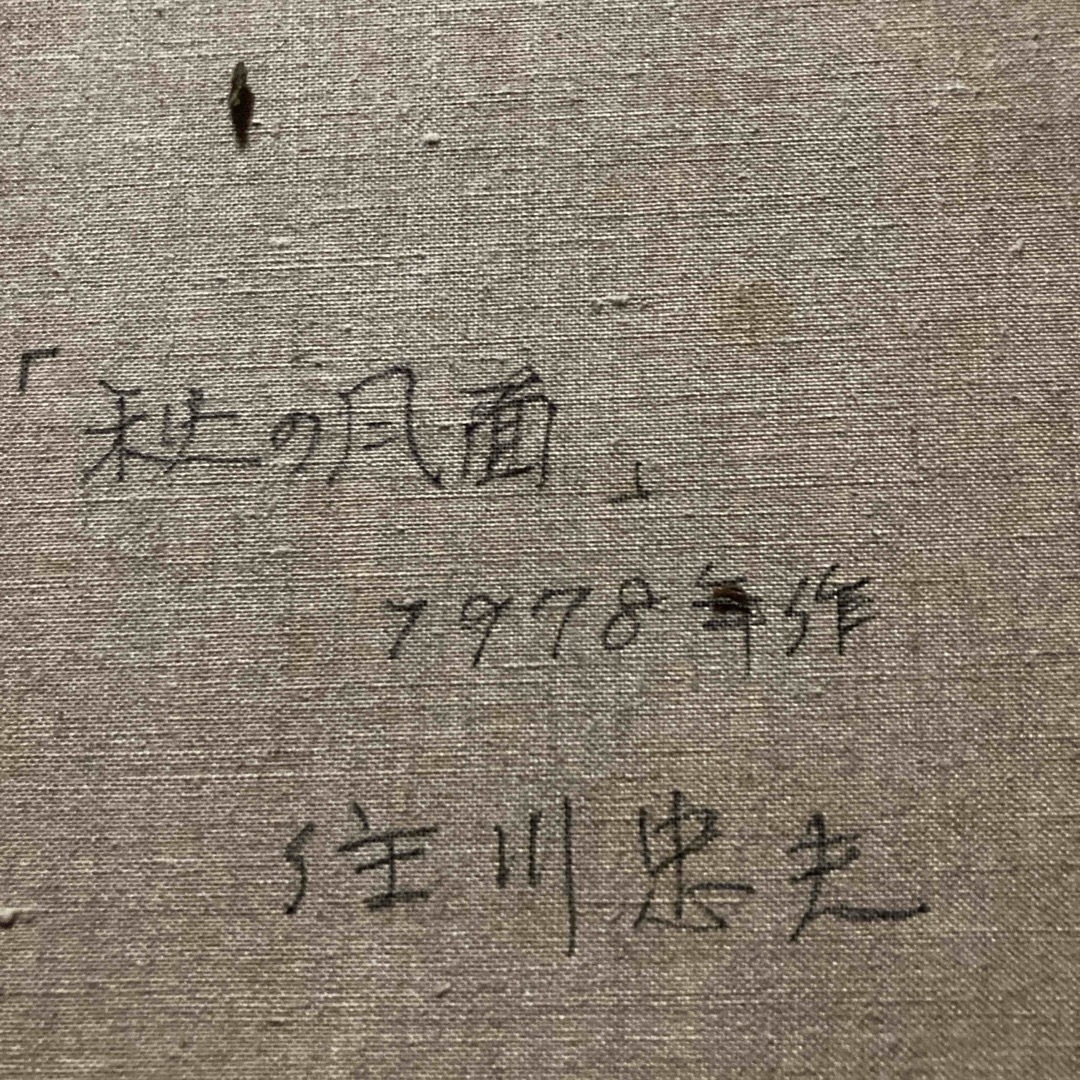 「秋の風面」
1978年作
住川忠夫